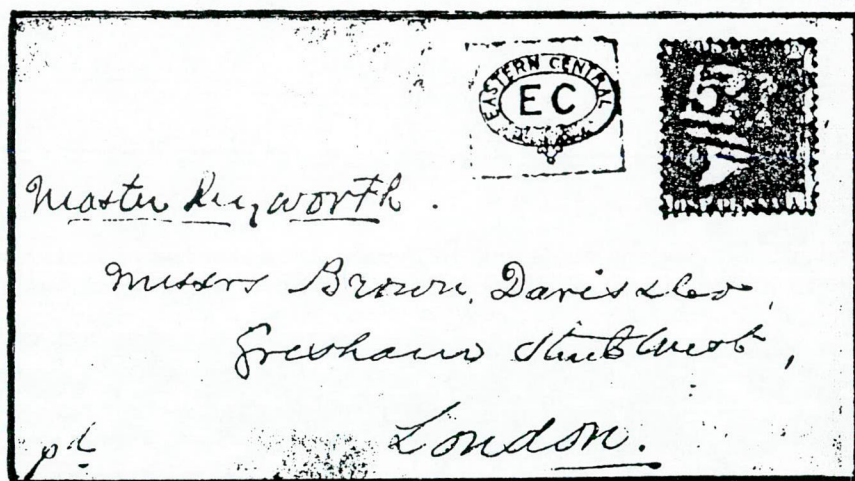 EASTERN CENTRAL
EC
5
ONE PENNY
Master
Messrs Brown, Davis & Co,
Gresham Street West,
London.
pd